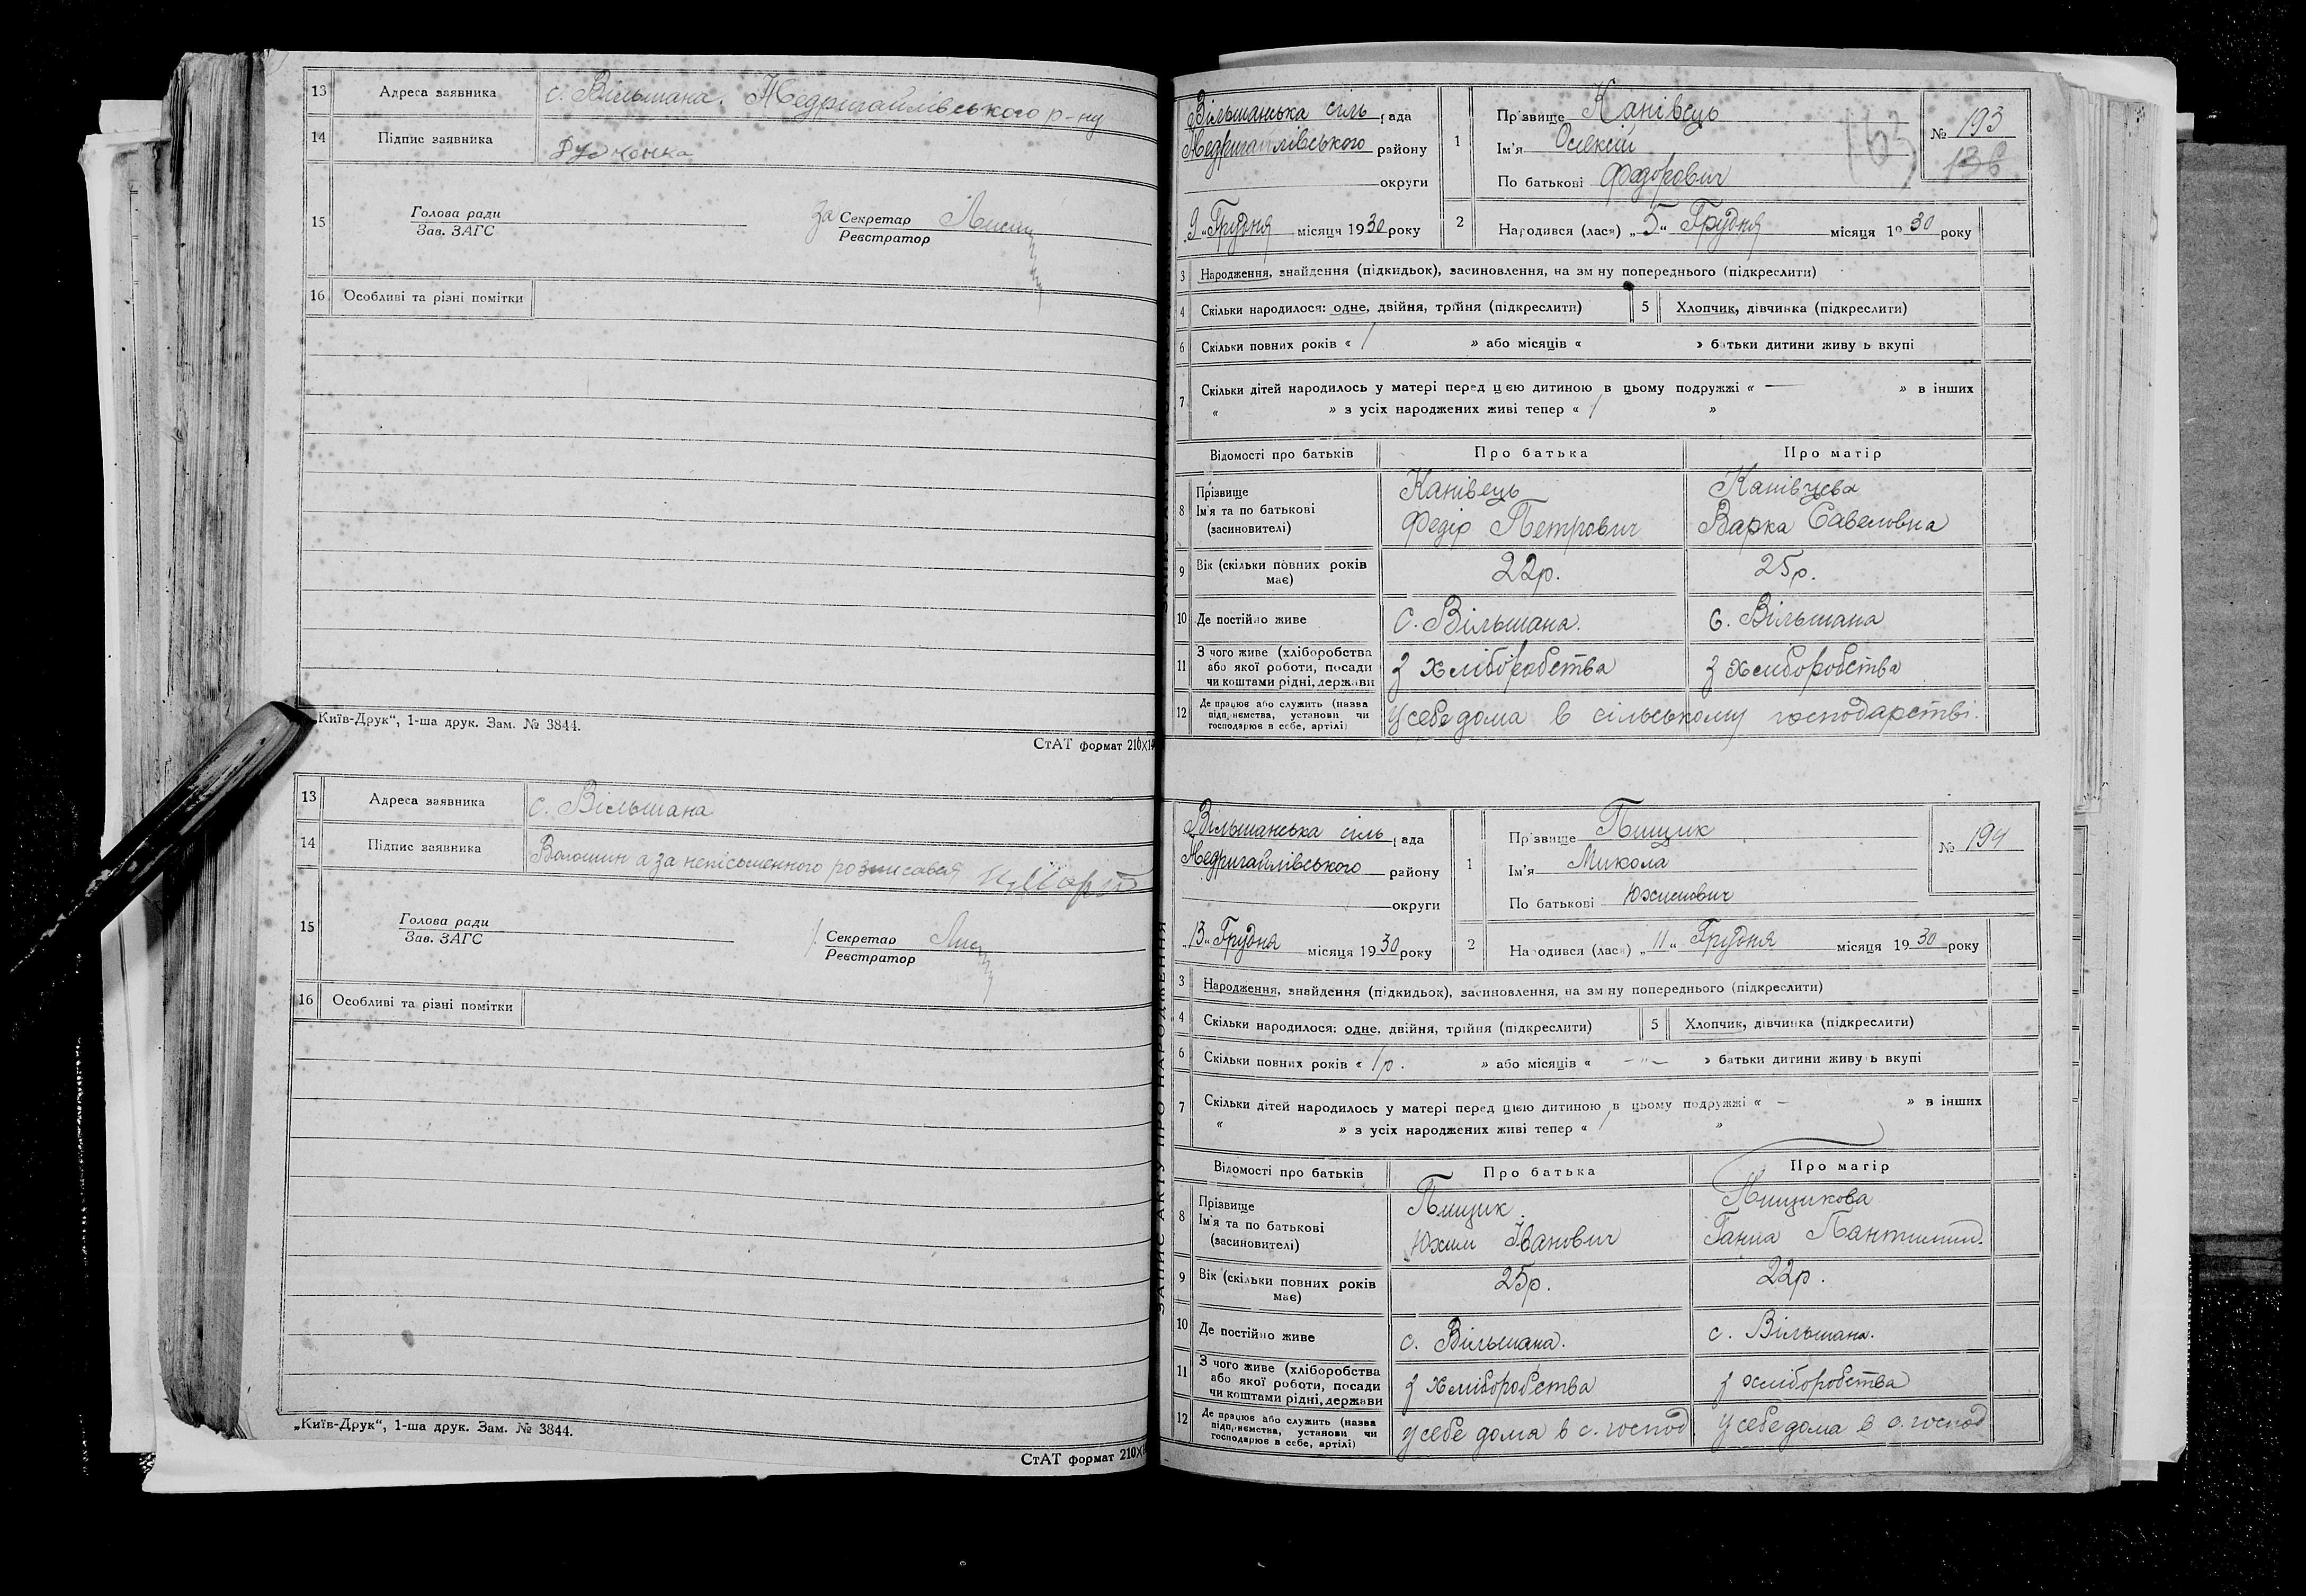 13 Адреса заявника с. Вільшана. Недригайлівського р-ну
14 Підпис заявника
15 Голова ради
Зав. ЗАГС
за Секретар
Реєстратор
16 Особливі та різні помітки
„Київ-Друк“, 1-ша друк. Зам. № 3844.
СтАТ формат 210×14
13 Адреса заявника с. Вільшана
14 Підпис заявника Волошин а за непісьменного розписався
15 Голова ради
Зав. ЗАГС
Секретар
Реєстратор
16 Особливі та різні помітки
„Київ-Друк“, 1-ша друк. Зам. № 3844.
СтАТ формат 210×1
ЗАПИС АКТУ ПРО НАРОДЖЕННЯ
Вільшанська сіль рада
Недригайлівського району
округи
„9“ Грудня місяця 1930 року
1 Прізвище Канівець
Ім'я Олексій
По батькові Федорович
163
№ 193
138
2 Народився (лася) „5“ Грудня місяця 1930 року
3 Народження, знайдення (підкидьок), засиновлення, на зміну попереднього (підкреслити)
4 Скільки народилося: одне, двійня, трійня (підкреслити) 5 Хлопчик, дівчинка (підкреслити)
6 Скільки повних років « 1 » або місяців « » батьки дитини живуть вкупі
7 Скільки дітей народилось у матері перед цією дитиною в цьому подружжі « — » в інших
« » з усіх народжених живі тепер « 1 »
Відомості про батьків Про батька Про матір
8 Прізвище Канівець Канівцева
Ім'я та по батькові
(засиновителі) Федір Петрович Варка Савеловна
9 Вік (скільки повних років має) 22р. 25р.
10 Де постійно живе с. Вільшана. с. Вільшана
11 З чого живе (хліборобства
або якої роботи, посади
чи коштами рідні, держави з хліборобства з хліборобства
12 Де працює або служить (назва
підприємства, установи чи
господарює в себе, артілі) у себе дома в сільському господарстві.
Вільшанська сіль рада
Недригайлівського району
округи
„13“ Грудня місяця 1930 року
1 Прізвище Пищик
Ім'я Микола
По батькові Юхимович
№ 194
2 Народився (лася) „11“ Грудня місяця 1930 року
3 Народження, знайдення (підкидьок), засиновлення, на зміну попереднього (підкреслити)
4 Скільки народилося: одне, двійня, трійня (підкреслити) 5 Хлопчик, дівчинка (підкреслити)
6 Скільки повних років « 1р. » або місяців « —"— » батьки дитини живуть вкупі
7 Скільки дітей народилось у матері перед цією дитиною в цьому подружжі « — » в інших
« » з усіх народжених живі тепер « 1 »
Відомості про батьків Про батька Про матір
8 Прізвище Пищик. Пищикова
Ім'я та по батькові
(засиновителі) Юхим Іванович Ганна
9 Вік (скільки повних років має) 25р. 22р.
10 Де постійно живе с. Вільшана. с. Вільшана.
11 З чого живе (хліборобства
або якої роботи, посади
чи коштами рідні, держави з хліборобства з хліборобства
12 Де працює або служить (назва
підприємства, установи чи
господарює в себе, артілі) у себе дома в с. господ у себе дома в с. господ